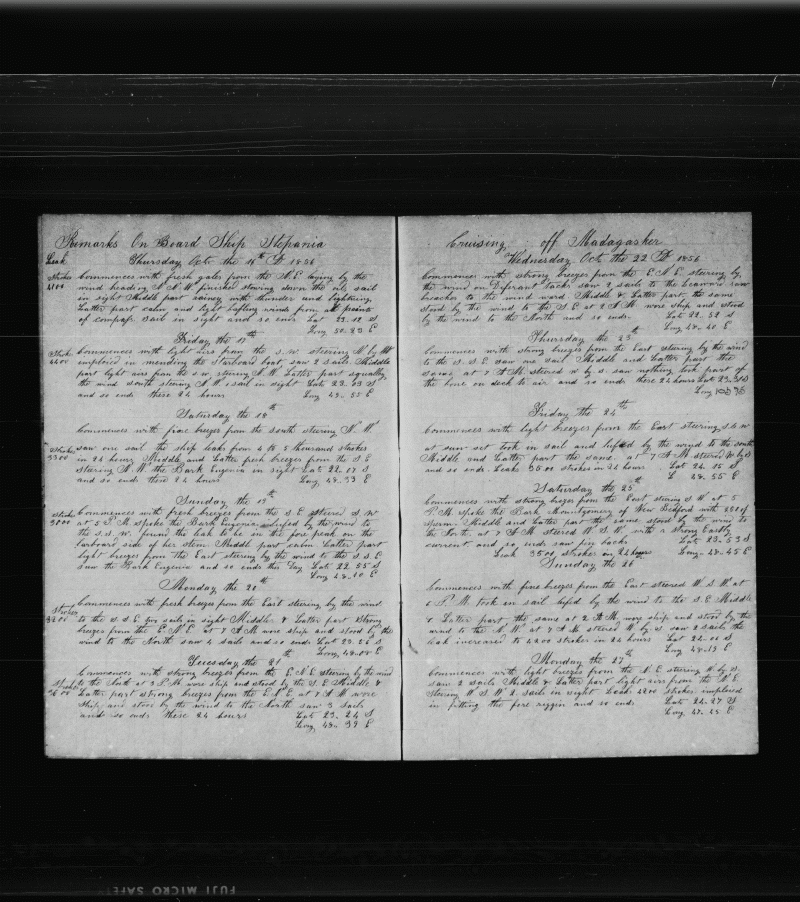 Remarks On Board Ship Stepania
Leak Thursday Oct the 16th AD 1856
Strokes 4100 Commences with fresh gales from the N.E. laying by the
wind heading N.N.W. finished stowing down the oil sail
in sight Middle part rainey with thunder and lightning
Latter part calm and light bafling winds from all points
of compass. Sail in sight and so ends Lat 23.12 S
Long 50.23 E
Friday the 17th
Stroke 4400 Commences with light airs from the S.W. steering N by W
imployed in mending the Starboard boat saw 2 sails Middle
part light airs from the S.W. steering N.W. Latter part squally
the wind south steering N.W. 1 sail in sight Lat 23.03 S
and so ends these 24 hours Long 49.55 E
Saturday the 18th
Commences with fine breezes from the south steering N.W.
Strokes saw one sail the ship leaks from 4 to 5 thousand strokes
in 24 hours Middle and Latter fresh breezes from the S.E.
stering N.W. the Bark Eugenia in sight Lat 22.17 S
and so ends these 24 hours Long 49.33 E
Sunday the 19th
Commences with fresh breezes from the S.E. steered S.W.
at 5 P.M. spoke the Bark Eugenia lufed by the wind to
the S.S.W. found the leak to be in the fore peak on the
larboard side of her stem. Middle part calm Latter part
light breezes from the East steering by the wind to the S.S.E.
saw the Bark Eugenia and so ends this Day Lat 22.55 S
Long 48.40 E
Monday the 20th
Strokes 3200 Commences with fresh breezes from the East steering by the wind
to the S.S.E. five sails in sight Middle & Latter part strong
breezes from the E.N.E. at 7 A M wore ship and stood by the
wind to the North saw 4 sails and so ends Lat 23.26 S
Long 48.08 E
Tuesday the 21st
Commences with strong breezes from the E.N.E. steering by the wind
Strokes to the North at 3 P.M. wore ship and stood by the S.E. Middle &
Latter part strong breezes from the E.N.E. at 7 A M wore
Ship and stood by the wind to the North saw 3 sails
and so ends these 24 hours Lat 23.24 S
Long 48.39 E
Cruising off Madagasker
Wednesday Oct the 22 AD 1856
Commences with strong breezes from the E.N.E. steering by
the wind on Diferant tacks saw 2 sails to the leaward saw
breaches to the wind ward Middle & Latter part the same
stood by the wind to the S.E. at 2 A M. wore ship and stood
by the wind to the North and so ends. Lat 22.52 S
Long 48.40 E
Thursday the 23th
Commences with strong breezes from the East stering by the wind
to the S.S.E. saw one sail Middle and Latter part the
same at 7 A.M. stered W by S. saw nothing took part of
the bone on deck to air and so ends these 24 hours Lat 23.31 S
Long
Friday the 24th
Commences with light breezes from the East steering S by W
at sun set took in sail and lufed by the wind to the south
Middle and Latter part the same. at 7 A M steered W by S
and so ends. Leaks 3500 strokes in 24 hours Lat 24.05 S
L 48.55 E
Saturday the 25th
Commences with strong breezes from the East stering S W at 5
P.M. spoke the Bark Montgomery of New Bedford with 250 of
sperm. Middle and Latter part the same stood by the wind to
the North. at 7 A M steered W.S.W. with a strong Eastly
current and so ends saw fin backs Lat 23.53 S
Leak 3500 strokes in 24 hours Long 48.45 E
Sunday the 26
Commences with fine breezes from the East steered W.S.W. at
6 P.M. took in sail lufed by the wind to the S.E. Middle
& Latter part the same at 2 A.M. wore ship and stood by the
wind to the N.W. at 7 A M steered W by S saw 2 sails the
leak increased to 4200 strokes in 24 hours Lat 24.00 S
Long 48.13 E
Monday the 27th
Commences with light breezes from the N.E. steering W by S.
saw 2 sails Middle & Latter part light airs from the N.E.
Stering W.S.W. 2 sails in sight Leak 4200 strokes imploied
in fitting the fore riggin and so ends Lat 24.27 S
Long 47.45 E
FUJI MICRO SAFET